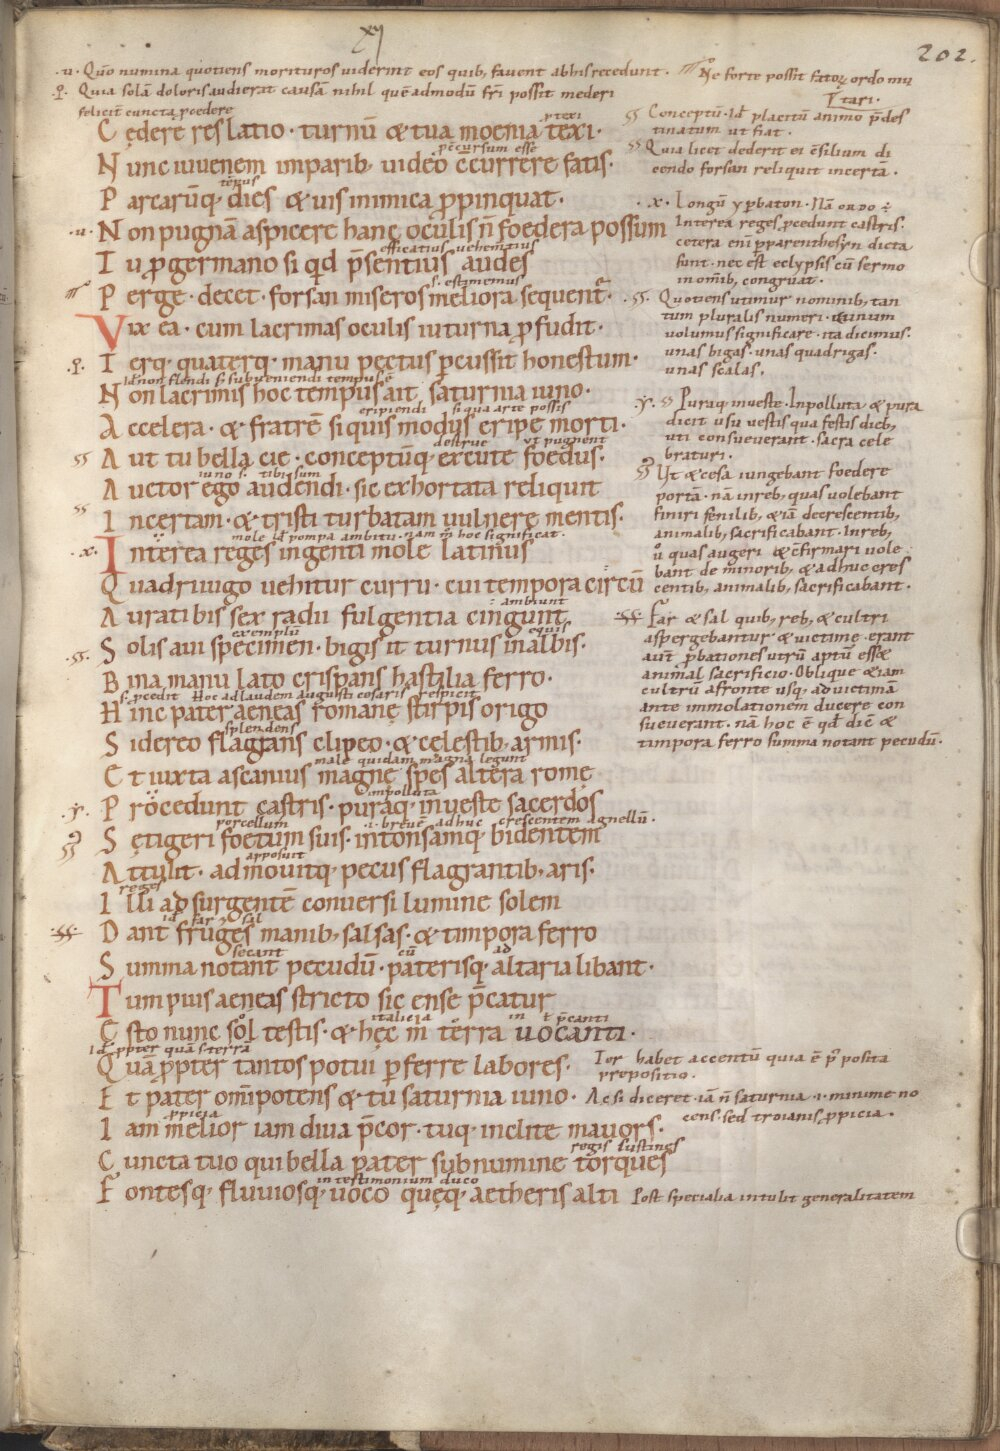 xij
202.
.u. Quo numina quotiens morituros uiderint eos quib; fauent abhis recedunt.
Ne forte possit fatoꝝ ordo mu
tari.
Quia solā doloris audierat causā nihil quēadmodū frī possit mederi
feliciē cuncta ꝓcedere
ꝓtexi
C ędere res latio · turnū & tua moenia texi ·
p̄cursum esse
N unc iuuenem imparib; uideo c̄currere fatis ·
tēpus
P arcarūq; dies & uis inimica ꝓpinquat ·
.u. N on pugnā aspicere hanc oculis n̄ foedera possum
efficatius uehemētius
T u ꝓ germano si qd p̄sentius audes
s. estimemus
P erge · decet · forsan miseros meliora sequent̄ ·
V ix ea · cum lacrimas oculis iuturna ꝓfudit ·
T erq; quaterq; manu pectus ꝑcussit honestum ·
Id non flendi s; subueniendi tempus ē
N on lacrimis hoc tempus ait saturnia iuno ·
eripiendi si qua arte possis
A ccelera · & fratrē si quis modus eripe morti ·
destrue ut pugnent
A ut tu bella cie · conceptūq; excute foedus ·
iuno s. tibi sum
A uctor ego audendi · sic exhortata reliquit
I ncertam · & tristi turbatam uulnere mentis ·
mole id pompa ambitu · nam m̄ hoc significat ·
.x. I nterea reges ingenti mole latinus
Q uadriuigo uehitur curru · cui tempora circū
ambiunt
A urati bis sex radii fulgentia cingunt
exemplū equis
S olis aui specimen · bigis it turnus in albis ·
B ina manu lato crispans hastilia ferro ·
s. ꝓcedit Hoc ad laudem augusti cesaris respicit
H inc pater aeneas romanę stirpis origo
splendens
S idereo flagrans clipeo · & celestib; armis ·
male quidam magna legunt
E t iuxta ascanius magnę spes altera romę
impolluta
.y. P rocedunt castris · puraq; in ueste sacerdos
porcellum .i. breuē adhuc crescentem agnellū ·
S ętigeri foetum suis · intonsamq; bidentem
apposuit
A ttulit · admouitq; pecus flagrantib; aris ·
reges
I lli ad surgentē conuersi lumine solem
id far & sal
D ant fruges manib; salsas · & timpora ferro
secant cū ad
S umma notant pecudū · paterisq; altaria libant ·
T um pius aeneas stricto sic ense p̄catur
italica in t p̄canti
E sto nunc sol testis · & hęc m̄ terra uocanti ·
id ꝓpter quā s. terrā
Q uā ꝓpter tantos potui ꝑferre labores ·
E t pater omīpotens & tu saturnia iuno ·
ꝓpicia
I am melior iam diua p̄cor · tuq; inclite mauors ·
regis sustines
C uncta tuo qui bella pater sub numine torques
in testimonium duco
F ontesq; fluuiosq; uoco quęq; aetheris alti
Conceptū · Id placitū animo p̄des
tinatum ut fiat ·
Quia licet dederit ei c̄silium di
cendo forsan reliquit incerta ·
.x. Longū yperbaton · Nā ordo ē
Interea reges ꝓcedunt castris ·
cetera eni ꝑ parenthesyn dicta
sunt · nec est eclypsis cū sermo
in omīb; congruat ·
Quotiens utimur nominib; tan
tum pluralis numeri · & unum
uolumus significare · ita dicimus ·
unas bigas · unas quadrigas ·
unas scalas ·
.y. Puraq; in ueste · Inpolluta & pura
dicit usu uestis qua festis dieb;
uti consueuerant · sacra cele
braturi ·
Ut & cesa iungebant foedere
portā · nā in reb; quas uolebant
finiri senilib; & iā decrescentib;
animalib; sacrificabant · In reb;
u quas augeri & c̄firmari uole
bant de minorib; & adhuc cres
centib; animalib; sacrificabant ·
Far & sal quib; reb; & cultri
aspergebantur & uictime · erant
aut ꝓbationes utrū aptū esset
animal sacrificio · Oblique & iam
cultrū a fronte usq; ad uictimā
ante immolationem ducere con
sueuerant · nā hoc ē qd dic̄ &
timpora ferro summa notant pecudū ·
Ter habet accentū quia ē p̄posita
prepositio ·
Ac si diceret · iā n̄ saturnia .i. minime no
cens · sed troianis ꝓpicia ·
Post specialia intulit generalitatem